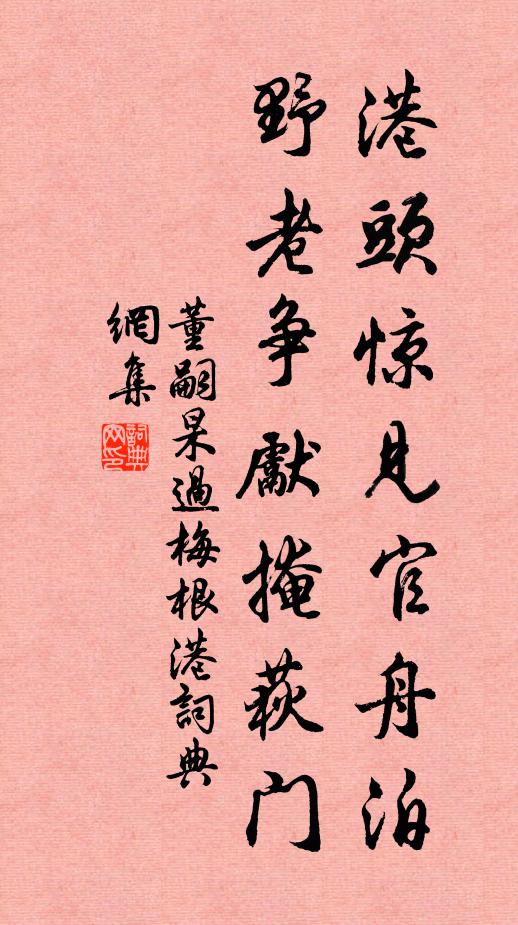 港頭惊見官舟泊
野老争獻掩荻门
董嗣杲過梅根港詞典
網集
詞典
网印